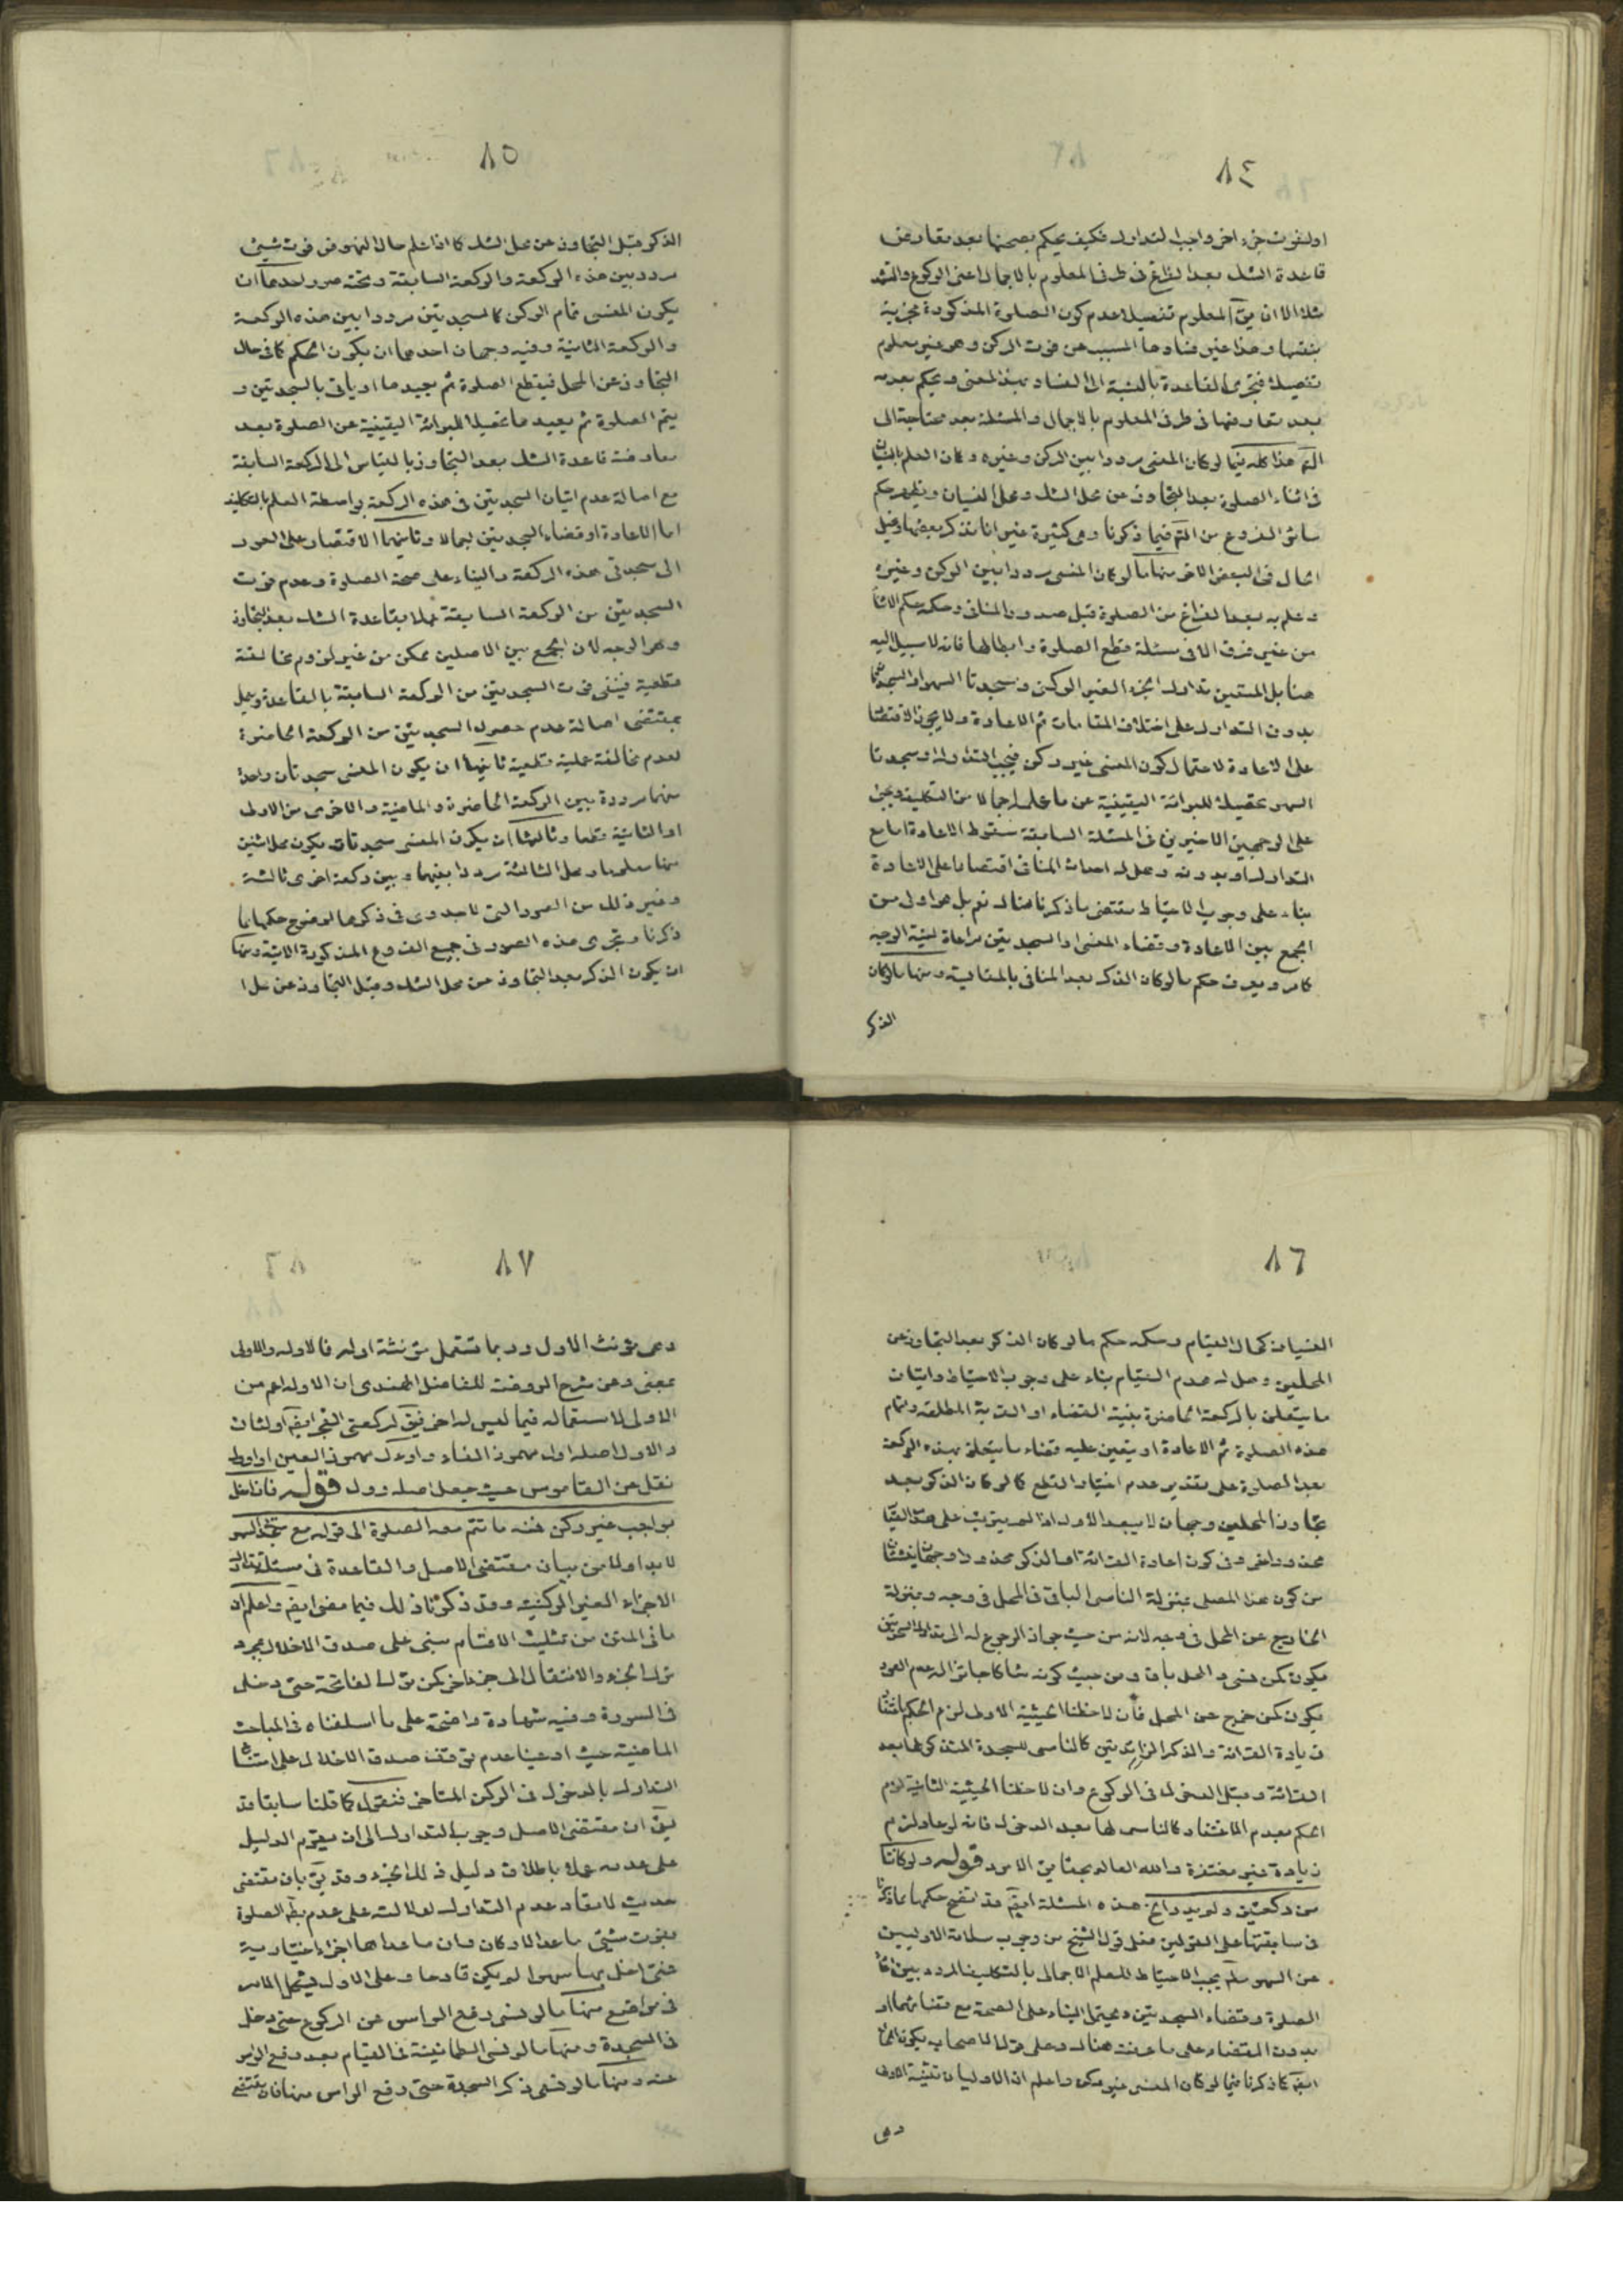 ٨٤
اولفوت جزء اخر واجب التدارك فكيف يحكم بصحتها بعد تعارض
قاعدة الشك بعد الفراغ فى طرفى المعلوم بالاجمال اعنى الركوع والتشهد
شك الا ان يق المعلوم تفصيلا عدم كون الصلوة المذكورة مجزية
بنفسها وهذا غير فسادها المسبب عن فوت الركن وهو غير معلوم
تفصيلا فتجرى القاعدة بالنسبة الى الفساد بهذا المعنى ويحكم بعدمه
بعد تعارضها فى طرفى المعلوم بالاجمال والمسئلة بعد محتاجة الى
التم هذا كله فيما لو كان المنسى مرددا بين الركن وغيره وكان العلم بالنسيان
فى اثناء الصلوة بعد التجاوز عن محل الشك ومحل النسيان ويظهر حكم
سائر الفروع من التم فيما ذكرنا وهى كثيرة غير انا نذكر بعضها ونحيل
الحال فى البعض الاخر منها ما لو كان المنسى مرددا بين الركن وغيره
وعلم به بعد الفراغ من الصلوة قبل صدور المنافى وحكمه حكم الاثناء
من غير فرق الا فى مسئلة قطع الصلوة وابطالها فانه لا سبيل اليه
هنا بل المتعين تدارك الجزء الغير الركن وسجدتا السهو او السجدتا
بدون التدارك على اختلاف المقامات ثم الاعادة ولا يجوز الاقتصار
على الاعادة لاحتمال كون المنسى غير ركن فيجب التدارك وسجدتا
السهو تحصيلا للبرائة اليقينية عن ما علم اجمالا من التكليف ويجئ
على الوجهين الاخيرين فى المسئلة السابقة سقوط الاعادة اما مع
التدارك او بدونه وهل له احداث المنافى اقتصارا على الاعادة
بناء على وجوب الاحتياط مقتضى ما ذكرنا هناك نعم بل هو اولى من
الجمع بين الاعادة وقضاء المنسى والسجدتين مراعاة لنية الوجه
كامر ويعرف حكم ما لو كان الذكر بعد المنافى بالمقايسة ومنها ما لو كان
الذكر
٨٥
الذكر قبل التجاوز عن محل الشك كما اذا علم حال النهوض فوت شيئ
مردد بين هذه الركعة والركعة السابقة وتحته صور احدها ان
يكون المنسى تمام الركن كالسجدتين مرددا بين هذه الركعة
والركعة الثانية وفيه وجهان احدهما ان يكون الحكم كما فى حال
التجاوز عن المحل فيقطع الصلوة ثم يعيدها او ياتى بالسجدتين و
يتم الصلوة ثم يعيدها تحصيلا للبرائة اليقينية عن الصلوة بعد
معارضة قاعدة الشك بعد التجاوز بالقياس الى الركعة السابقة
مع اصالة عدم اتيان السجدتين فى هذه الركعة بواسطة العلم بالتكليف
اما الاعادة او قضاء السجدتين اجمالا وثانيهما الاقتصار على العود
الى سجدتى هذه الركعة والبناء على صحة الصلوة وعدم فوت
السجدتين من الركعة السابقة عملا بقاعدة الشك بعد التجاوز
وهو الوجه لان الجمع بين الاصلين ممكن من غير لزوم مخالفة
قطعية فينفى فوت السجدتين من الركعة السابقة بالقاعدة ويعمل
بمقتضى اصالة عدم حصول السجدتين من الركعة الحاضرة
لعدم مخالفة عملية قطعية ثانيها ان يكون المنسى سجدتان واحدة
منهما مرددة بين الركعة الحاضرة والماضية والاخرى من الاولى
او الثانية قطعا وثالثها ان يكون المنسى سجدتات يكون محل اثنين
منها معلوما ومحل الثالثة مرددا بينهما وبين ركعة اخرى ثالثة
وغير ذلك من الصور التى لا جدوى فى ذكرها لوضوح حكمها بما
ذكرنا وتجرى هذه الصور فى جميع الفروع المذكورة الاتية ومنها
ان يكون الذكر بعد التجاوز عن محل الشك وقبل التجاوز عن محل
٨٦
النسيان كحال القيام وحكمه حكم ما لو كان الذكر بعد التجاوز عن
المحلين وهل له هدم القيام بناء على وجوب الاحتياط واتيان
ما يتعلق بالركعة الحاضرة بنية القضاء او القربة المطلقة وتمام
هذه الصلوة ثم الاعادة او يتعين عليه قضاء ما يتعلق بهذه الركعة
بعد الصلوة على تقدير عدم اختيار القطع كما لو كان الذكر بعد
تجاوز المحلين وجهان لا يبعد الاول اذا لم يترتب على هذا القيام
محذور اخر وفى كون اعادة القرائة او الذكر محذورا وجهان ينشئان
من كون هذا المصلى بمنزلة الناسى الباقى فى المحل فى وجه وبمنزلة
الخارج عن المحل فى وجه لانه من حيث جواز الرجوع له الى تدارك السجدتين
يكون كمن نسى والمحل باق ومن حيث كونه شاكا جائزا له عدم العود
يكون كمن خرج عن المحل فان لاحظنا الحيثية الاولى لزم الحكم باغتفار
زيادة القرائة والذكر الزائدتين كالناسى للسجدة المتذكر لها بعد
القرائة وقبل الدخول فى الركوع وان لاحظنا الحيثية الثانية لزم
الحكم بعدم الاغتفار كالناسى لها بعد الدخول فانه لو عاد لزم
زيادة غير مغتفرة والله العالم بحقايق الامور قوله ولو كانتا
من ركعتين ولم يدر الخ هذه المسئلة ايضا قد اتضح حكمها مما ذكرنا
فى سابقتها على القولين فعلى قول الشيخ من وجوب سلامة الاوليين
عن السهو سلم يجب الاحتياط للعلم الاجمالى بالتكليف المردد بين اعادة
الصلوة وقضاء السجدتين ويحتمل البناء على الصحة مع قضائهما او
بدون القضاء على ما عرفت هناك وعلى قول الاصحاب يكون الحال
ايضا كما ذكرنا فيما لو كان المنسى غير ركن واعلم ان الاوليان تثنية الاولى
وهى
٨٧
وهى مؤنث الاول وربما تستعمل مؤنثة اوله فالاوله والاولى
بمعنى وعن شرح الروضة للفاضل الهندى ان الاوله اعم من
الاولى لاستعماله فيما ليس له اخر فيق لركعتى الفجر ايضا اولتان
والاول اصله اول مهموز الفاء واوءل مهموز العين او اول
نقل عن القاموس حيث جعل اصله وول قوله فان اخل
بواجب غير ركن فمنه ما تتم معه الصلوة الى قوله مع سجدتى السهو
لابد اولا من بيان مقتضى الاصل والقاعدة فى مسئلة تدارك
الاجزاء الغير الركنية وقد ذكرنا ذلك فيما مضى ايضا واعلم ان
ما فى المتن من تثليث الاقسام مبنى على صدق الاخلال بمجرد
ترك الجزء والانتقال الى جزء اخر كمن ترك الفاتحة حتى دخل
فى السورة وفيه شهادة واضحة على ما اسلفناه فى المباحث
الماضية حيث ادعينا عدم توقف صدق الاخلال على امتناع
التدارك بالدخول فى الركن المتاخر فنقول كما قلنا سابقا قد
يق ان مقتضى الاصل وجوب التدارك الى ان يقوم الدليل
على عدمه عملا باطلاق دليل ذلك الجزء وقد يق بان مقتضى
حديث لا تعاد عدم التدارك لدلالته على عدم بطلان الصلوة
بفوت شيئ ما عدا الاركان وان ما عداها اجزاء اختيارية
فمتى اخل بها سهوا لم يكن قادحا وعلى الاول فيشكل الامر
فى مواضع منها ما لو نسى رفع الراس من الركوع حتى دخل
فى السجدة ومنها ما لو نسى الطمانينة فى القيام بعد رفع الراس
عنه ومنها ما لو نسى ذكر السجدة حتى رفع الراس منها فان مقتضى